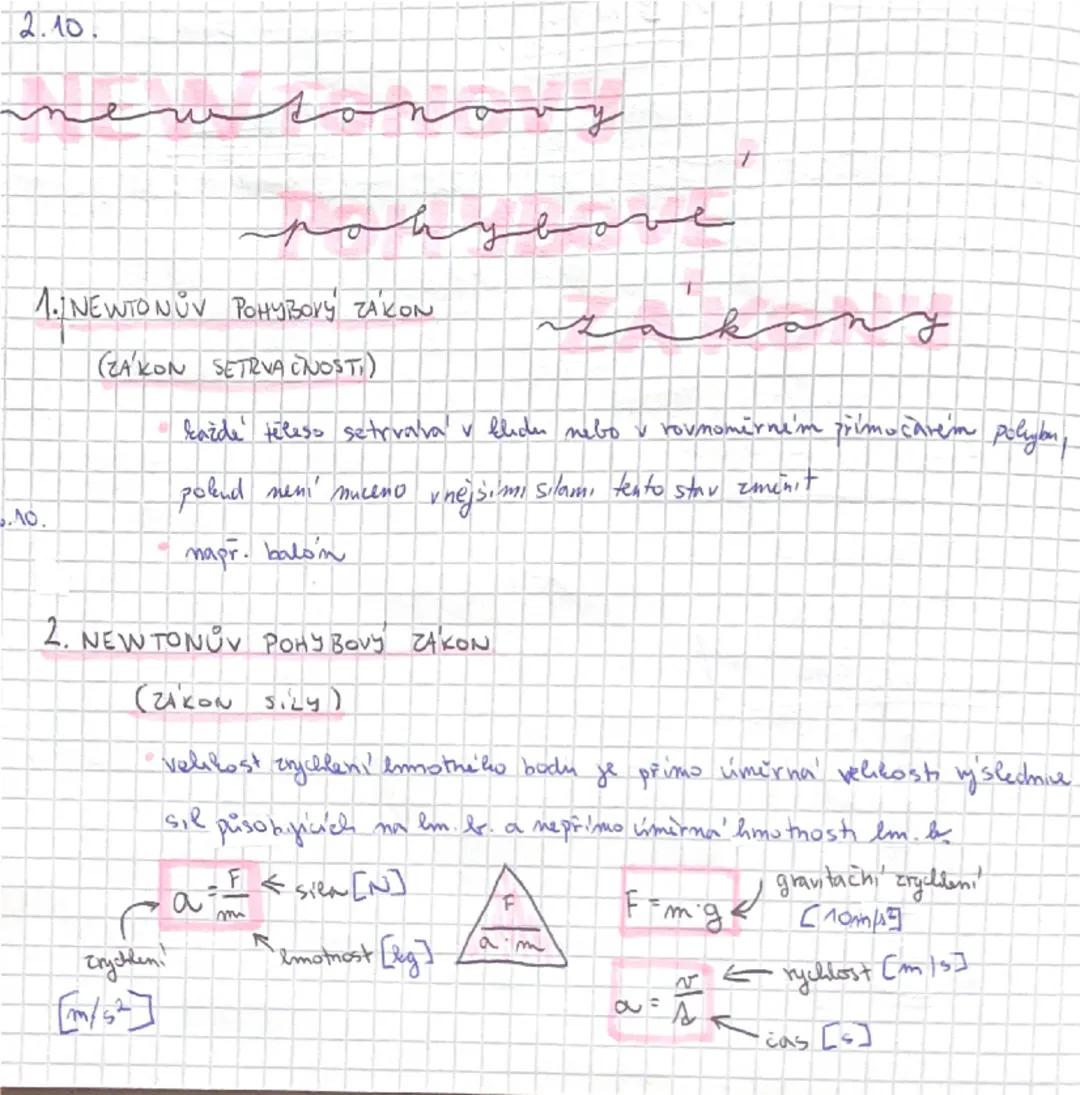 2.10.
newtonovy
pohybové
zákony
1. NEWTONŮV POHYBOVÝ ZÁKON
(ZÁKON SETRVAČNOSTI)
• každé těleso setrvává v klidu nebo v rovnoměrném přímočarém pohybu,
pokud není nuceno vnějšími silami tento stav změnit
.10.
• např. balón
2. NEWTONŮV POHYBOVÝ ZÁKON
(ZÁKON SÍLY)
• velikost zrychlení hmotného bodu je přímo úměrná velikosti výslednice
sil působících na hm. b. a nepřímo úměrná hmotnosti hm. b.
a = F/m
síla [N]
hmotnost [kg]
zrychlení
[m/s²]
F
a · m
F = m · g
gravitační zrychlení
[10m/s²]
a = v/t
rychlost [m/s]
čas [s]